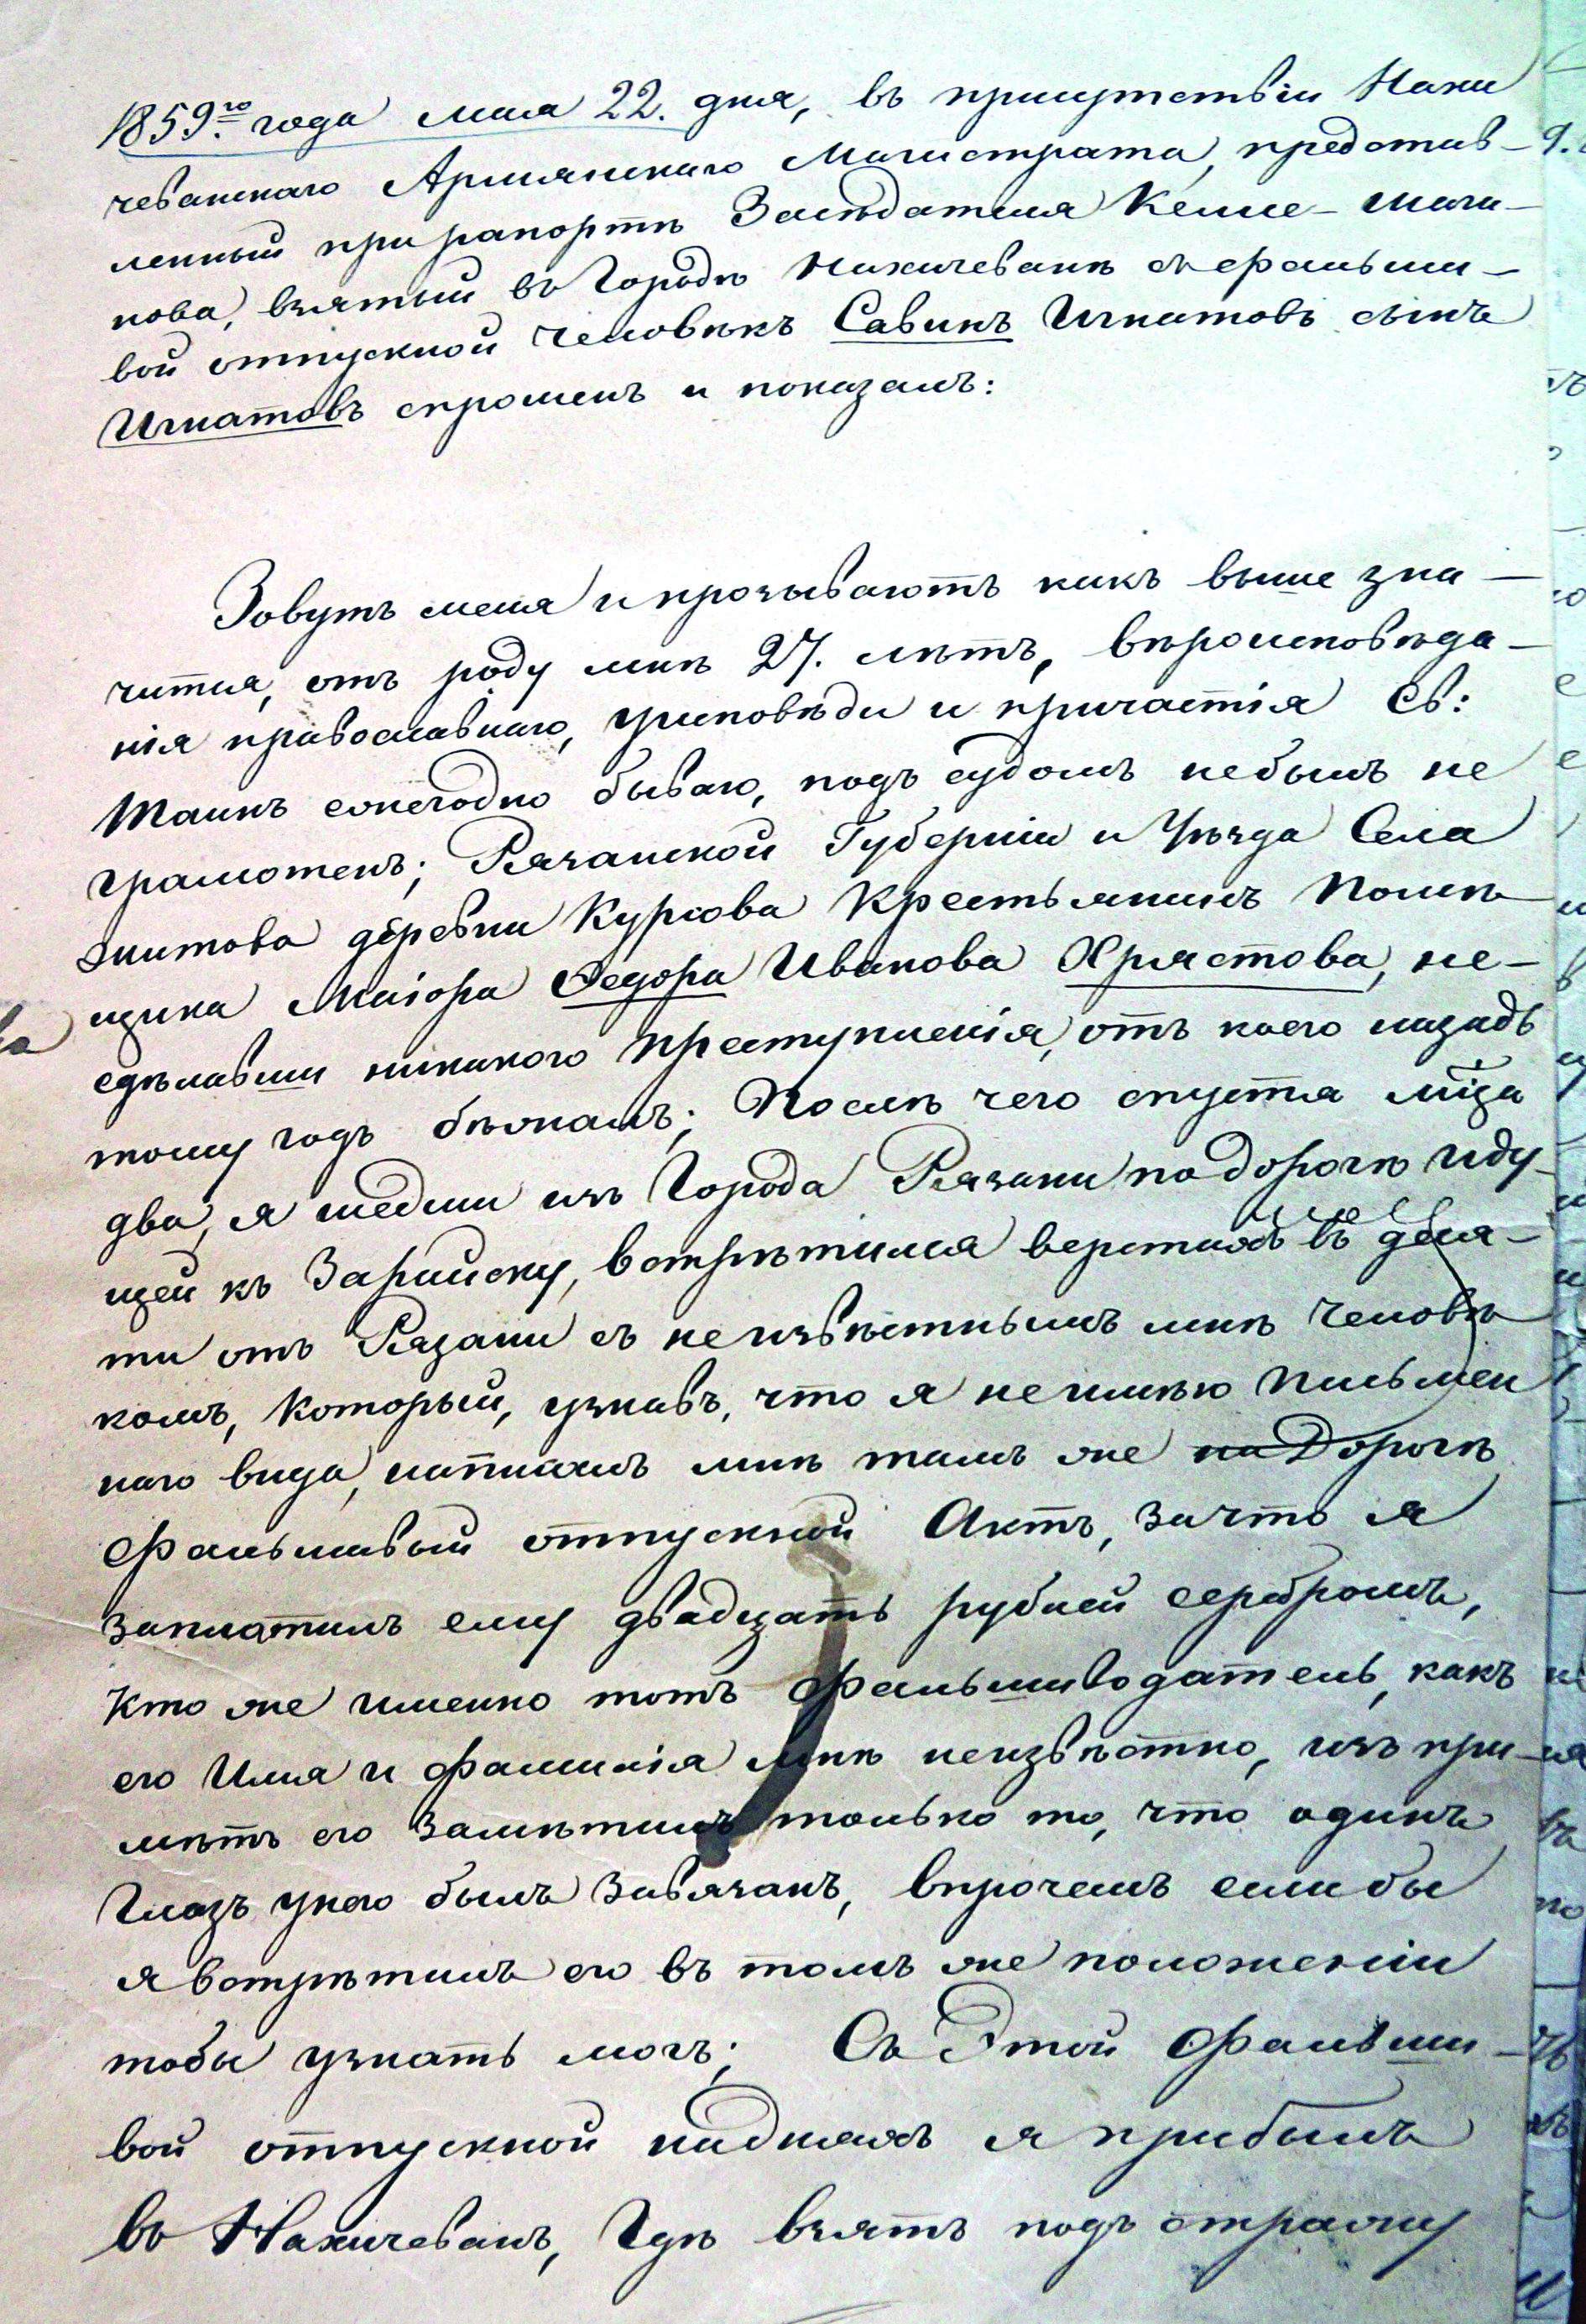 1859го года мая 22. дня, въ присутствіи Нахи
чеванскаго Армянскаго Магистрата, представ-
ленный при рапортѣ Засѣдателя Келле-Шаги-
нова, взятый въ Городѣ Нахичеванѣ съ фальши-
вой отпускной человѣкъ Савинъ Игнатовъ сынъ
Игнатовъ спрошенъ и показалъ:
Зовутъ меня и прозываютъ какъ выше зна-
чится, отъ роду мнѣ 27. лѣтъ, вѣроисповѣда-
нія православнаго, у исповѣди и причастія Св:
Таинъ ежегодно бываю, подъ судомъ небылъ не
грамотенъ; Рязанской Губерніи и Уѣзда Села
деревни Курова Крестьянинъ Помѣ-
щика Маіора Федора Иванова Хрястова, не-
сдѣлавши никакого преступленія, отъ коего назадъ
тому годъ бѣжалъ; Послѣ чего спустя мѣца
два, я шедши изъ Города Рязани по дорогѣ иду-
щей къ Зарайску, встрѣтился верстахъ въ девя-
ти отъ Рязани съ неизвѣстнымъ мнѣ человѣ
комъ, который, узнавъ, что я неимѣю письмен
наго вида, написалъ мнѣ тамъ же на Дорогѣ
фальшивый отпускной Актъ, за что я
заплатилъ ему двадцать рублей серебромъ,
Кто же именно тотъ фальшиводатель, какъ
его Имя и фамилія мнѣ неизвѣстно, изъ при-
мѣтъ его замѣтилъ только то, что одинъ
Глазъ унего былъ завязанъ, впрочемъ еслибы
я встрѣтилъ его въ томъ же положеніи
тобы узнать могъ; Съ Этой фальши-
вой отпускной надняхъ я прибылъ
въ Нахичевань, Гдѣ взятъ подъ стражу